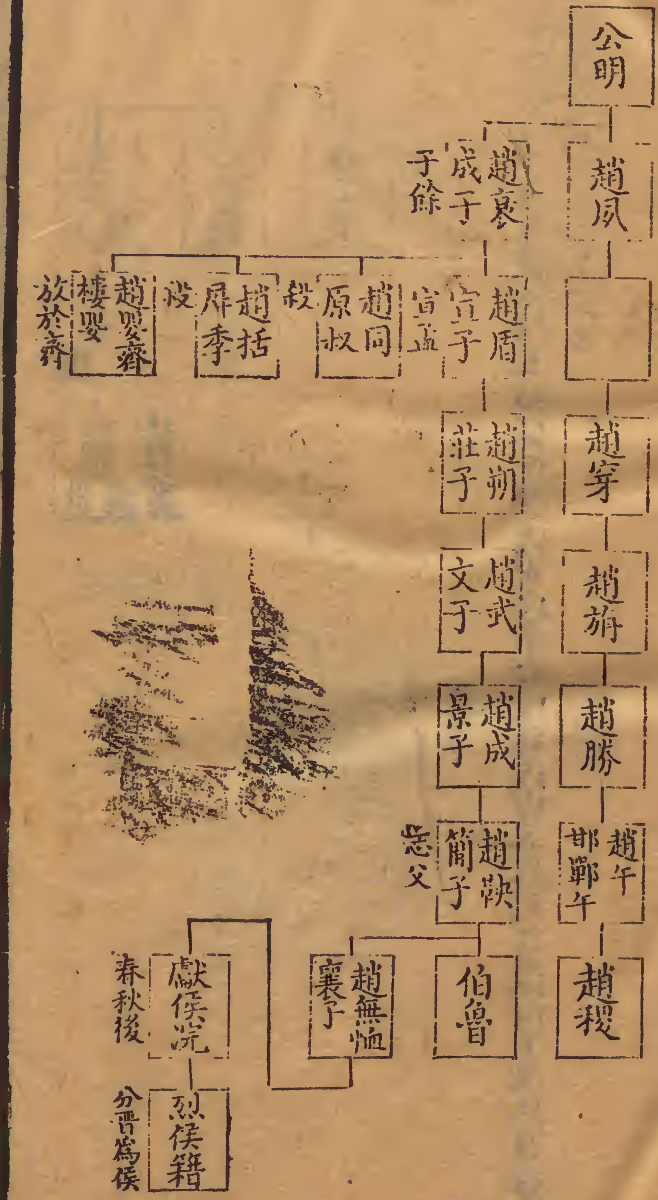 公明
趙夙
趙穿
趙旃
趙勝
趙午
邯鄲午
趙稷
趙衰
成子
子餘
趙盾
宣子
宣孟
趙朔
莊子
趙武
文子
趙成
景子
趙鞅
簡子
志父
伯魯
趙無恤
襄子
趙同
原叔
殺
趙括
屏季
殺
趙嬰齊
樓嬰
放於齊
獻侯浣
春秋後
烈侯籍
分晉爲侯